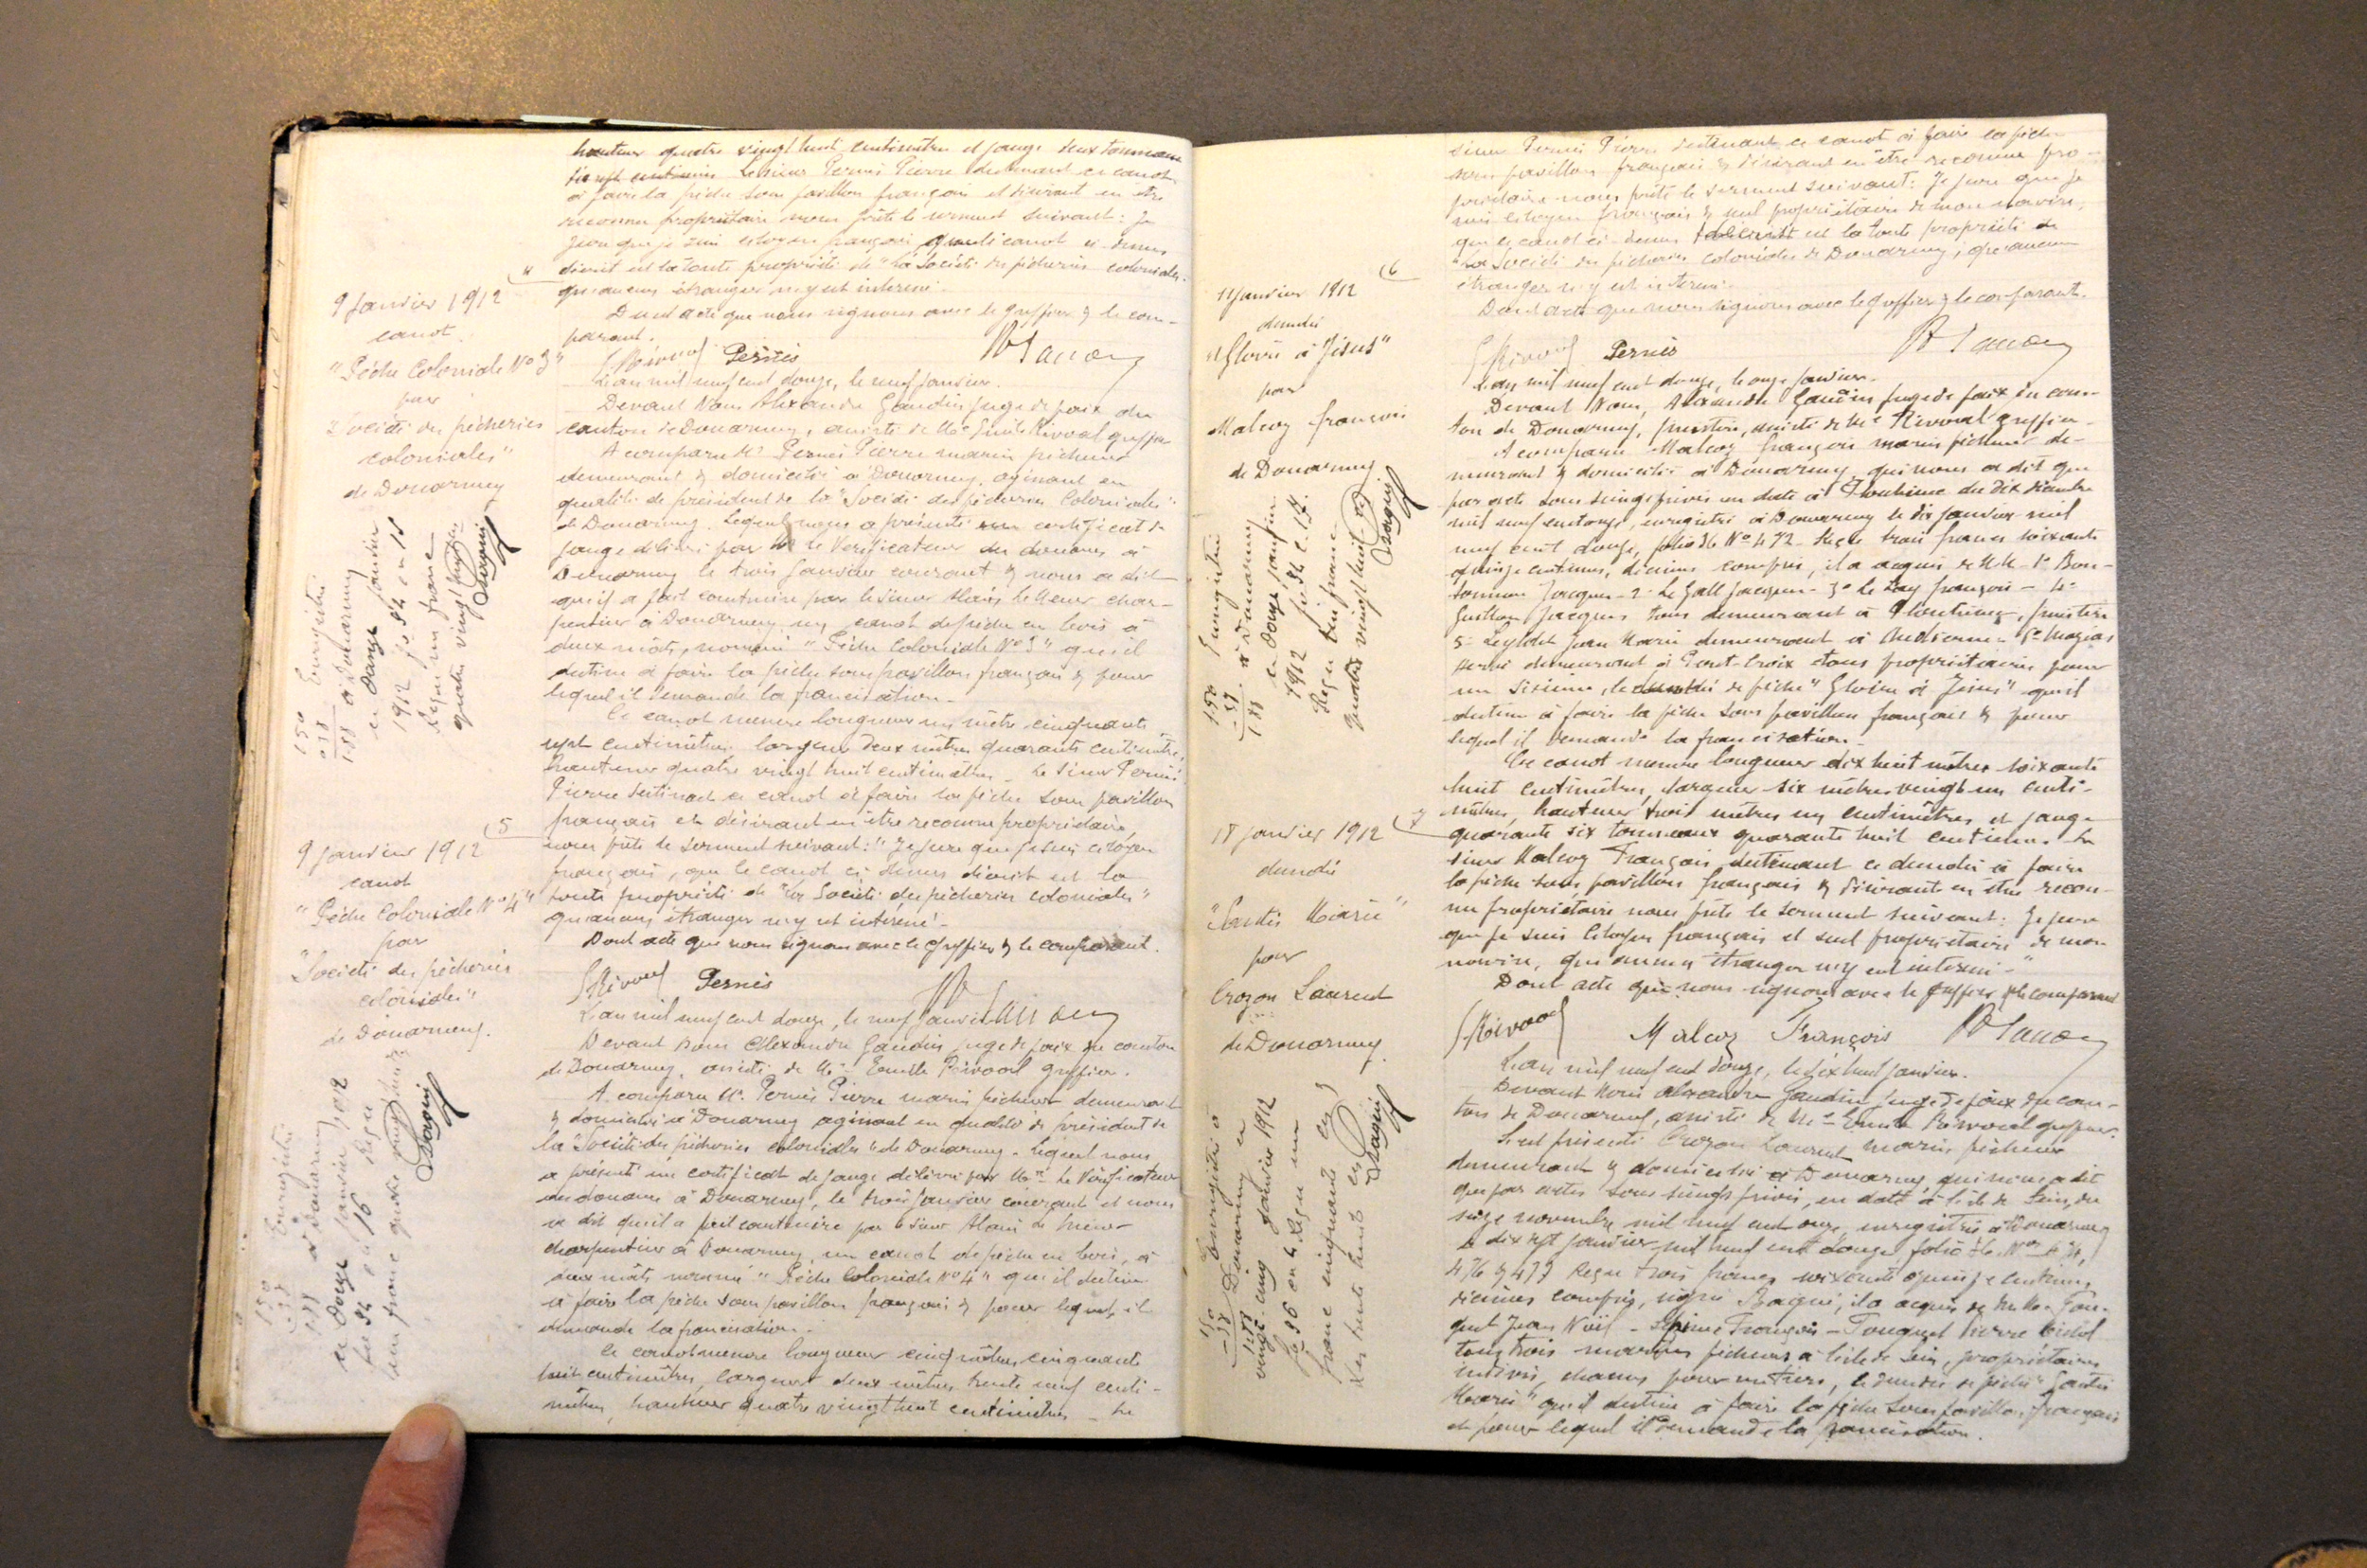 hauteur quatre vingt huit centimètres et jauge deux tonneaux
dix sept centièmes Le sieur Pernès Pierre destinant ce canot
à faire la pêche sous pavillon français et désirant en être
reconnu propriétaire nous prête le serment suivant : Je
jure que je suis citoyen français, que le canot ci-dessus
décrit est la toute propriété de "La Société des pêcheries coloniales"
qu'aucun étranger n'y est intéressé.
Dont acte que nous signons avec le greffier & le com-
parant.
Pernès
L'an mil neuf cent douze, le neuf janvier.
(4
9 Janvier 1912
canot
"Pêche Coloniale No 3"
par
"Société des pêcheries
coloniales"
de Douarnenez
Devant Nous Alexandre Gaudin juge de paix du
canton de Douarnenez, assisté de Me Emile Rivoal greffier
A comparu Mr Pernès Pierre marin pêcheur
demeurant & domicilié à Douarnenez, agissant en
qualité de président de la "Société des pêcheries Coloniales"
de Douarnenez. Lequel nous a présenté un certificat de
jauge délivré par Mr le Vérificateur des douanes à
Douarnenez le trois janvier courant & nous a dit
qu'il a fait construire par le sieur Alain Le Henr char-
pentier à Douarnenez un canot de pêche en bois à
deux mâts, nommé "Pêche Coloniale No 3" qu'il
destine à faire la pêche sous pavillon français & pour
lequel il demande la francisation.
Ce canot mesure longueur mètre cinquante
sept centimètres largeur deux mètres quarante centimètres,
hauteur quatre vingt huit centimètres _ Le sieur Pernès
Pierre destinant ce canot à faire la pêche sous pavillon
français et désirant en être reconnu propriétaire,
nous prête le serment suivant : "Je jure que je suis citoyen
français, que le canot ci-dessus décrit est la
toute propriété de "La Société des pêcheries coloniales"
qu'aucun étranger n'y est intéressé -
Dont acte que nous signons avec le greffier & le comparant.
Pernès
1.50 Enregistré
0.38 à Douarnenez
1.88 en douze janvier
1912 fo 34 c 15
Reçu un franc
quatre vingt huit
(5
9 Janvier 1912
canot
"Pêche Coloniale No 4"
par
"Société des pêcheries
coloniales"
de Douarnenez.
L'an mil neuf cent douze, le neuf janvier
Devant Nous Alexandre Gaudin juge de paix du canton
de Douarnenez, assisté de Me Emile Rivoal greffier.
A comparu Mr. Pernès Pierre marin pêcheur demeurant
& domicilié à Douarnenez agissant en qualité de président de
la "Société des pêcheries coloniales" de Douarnenez. Lequel nous
a présenté un certificat de jauge délivré par Mr le Vérificateur
des douanes à Douarnenez, le trois janvier courant et nous
a dit qu'il a fait construire par le sieur Alain Le Henr
charpentier à Douarnenez, un canot de pêche en bois, à
deux mâts nommé "Pêche Coloniale No 4" qu'il destine
à faire la pêche sous pavillon français & pour lequel il
demande la francisation.
Ce canot mesure longueur cinq mètres cinquante
huit centimètres, largeur deux mètres trente neuf centi-
mètres, hauteur quatre vingt huit centimètres _ Le
1.50 Enregistré
0.38 à Douarnenez
1.88 en douze janvier 1912
fo 34 c 16 Reçu
un franc quatre vingt huit
sieur Pernès Pierre destinant ce canot à faire la pêche
sous pavillon français & désirant en être reconnu pro-
priétaire nous prête le serment suivant : Je jure que je
suis citoyen français & seul propriétaire de mon navire,
que le canot ci-dessus décrit est la toute propriété de
"La Société des pêcheries coloniales de Douarnenez, qu'aucun
étranger n'y est intéressé.
Dont acte que nous signons avec le greffier & le comparant.
Pernès
(6
11 janvier 1912
dundée
"Gloire à Jésus"
par
Malcoz François
de Douarnenez
L'an mil neuf cent douze, le onze janvier.
Devant Nous, Alexandre Gaudin juge de paix du can-
ton de Douarnenez, finistère, assisté de Me Rivoal greffier.
A comparu Malcoz François marin pêcheur de-
meurant & domicilié à Douarnenez qui nous a dit que
par acte sous seings privés en date à Plouhinec du dix décembre
mil neuf cent onze, enregistré à Douarnenez le dix janvier mil
neuf cent douze, folio 36 No 472 Reçu trois francs soixante
quinze centimes, décimes compris, il a acquis de MM. 1o
Jacques - 2o Le Gall Jacques - 3o Le Bay François - 4o
Guillou Jacques tous demeurant à Plouhinec, finistère
5o Jean Marie demeurant à Audierne - 6o
Henri demeurant à Pont-Croix & tous propriétaires pour
un sixième, le dundée de pêche "Gloire à Jésus" qu'il
destine à faire la pêche sous pavillon français & pour
lequel il demande la francisation _
Ce canot mesure longueur dix huit mètres soixante
huit centimètres, largeur six mètres vingt un centi-
mètres, hauteur trois mètres un centimètres et jauge
quarante six tonneaux quarante huit centièmes. Le
sieur Malcoz François destinant ce dundée à faire
la pêche sous pavillon français & désirant en être recon-
nu propriétaire nous prête le serment suivant : Je jure
que je suis citoyen français et seul propriétaire de mon
navire, qu'aucun étranger n'y est intéressé -"
Dont acte que nous signons avec le greffier & le comparant
Malcoz François
1.50 Enregistré
.38 à Douarnenez
1.88 en douze janvier
1912 fo 34 c. 17.
Reçu un franc
quatre vingt huit
(7
18 janvier 1912
dundée
"Sainte Marie"
par
Crozon Laurent
de Douarnenez
L'an mil neuf cent douze, le dix huit janvier.
Devant Nous Alexandre Gaudin juge de paix du can-
ton de Douarnenez, assisté de Me Emile Rivoal greffier.
S'est présenté Crozon Laurent marin pêcheur
demeurant & domicilié à Douarnenez qui nous a dit
que par actes sous seings privés, en date à l'île de Sein, du
seize novembre mil neuf cent onze, enregistrés à Douarnenez
le dix sept janvier mil neuf cent douze, folio Nos
476 & 477 Reçu trois francs soixante quinze centimes
décimes compris, signé il a acquis de MM.
Jean Noël - François - Pierre
tous trois marins pêcheurs à l'île de Sein, propriétaires
indivis, chacun pour un tiers, le dundée de pêche "Sainte
Marie" qu'il destine à faire la pêche sous pavillon français
et pour lequel il demande la francisation.
1.50 Enregistré à
.38 Douarnenez en
1.88
vingt cinq janvier 1912
fo 36 c 4 Reçu un
franc cinquante